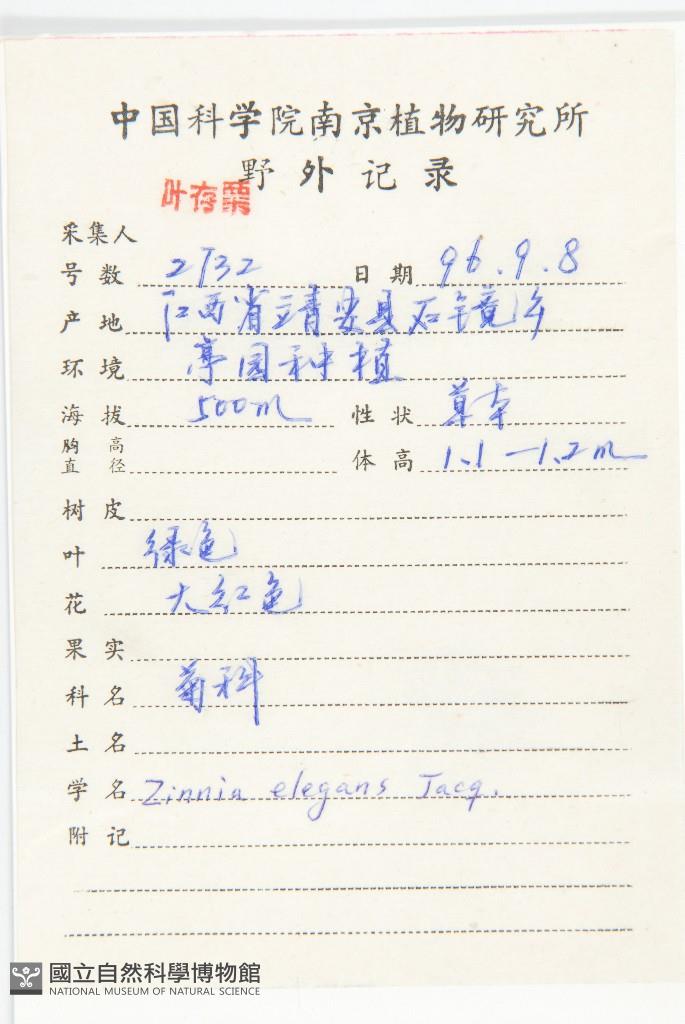 中国科学院南京植物研究所
野外记录
叶存票
采集人
号数 2732 日期 96.9.8
产地 江西省靖安县石镜乡
环境 亭园种植
海拔 500m 性状 草本
胸高直径 体高 1.1—1.2m
树皮
叶 绿色
花 大红色
果实
科名 菊科
土名
学名 Zinnia elegans Jacq.
附记
國立自然科學博物館
NATIONAL MUSEUM OF NATURAL SCIENCE